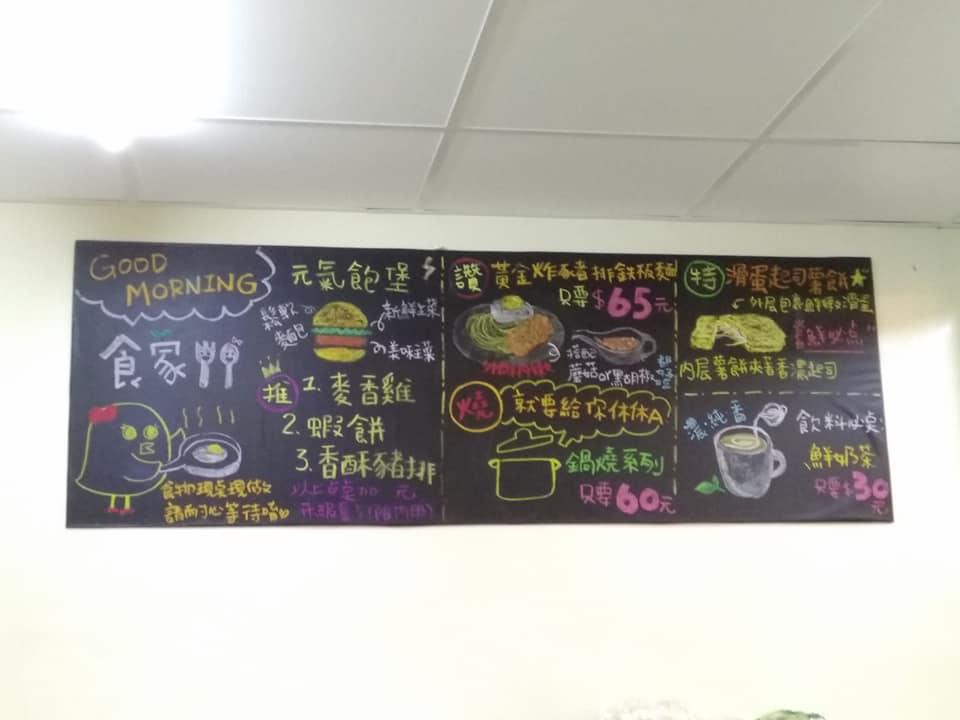 GOOD
MORNING
食家
食物現點現做
請耐心等待唷
元氣飽堡
鬆軟
麵包
新鮮生菜
美味生菜
推
1. 麥香雞
2. 蝦餅
3. 香酥豬排
讚 黃金炸豬排鐵板麵
只要$65元
搭配
蘑菇or黑胡椒
燒 就要給你休休A
鍋燒系列
只要60元
特 滑蛋起司薯餅
外層包裹鮮嫩の滑蛋
"嚐鮮必点"
内层薯餅夾著香濃起司
濃.純.香
飲料必点:
鮮奶茶
只要$30元